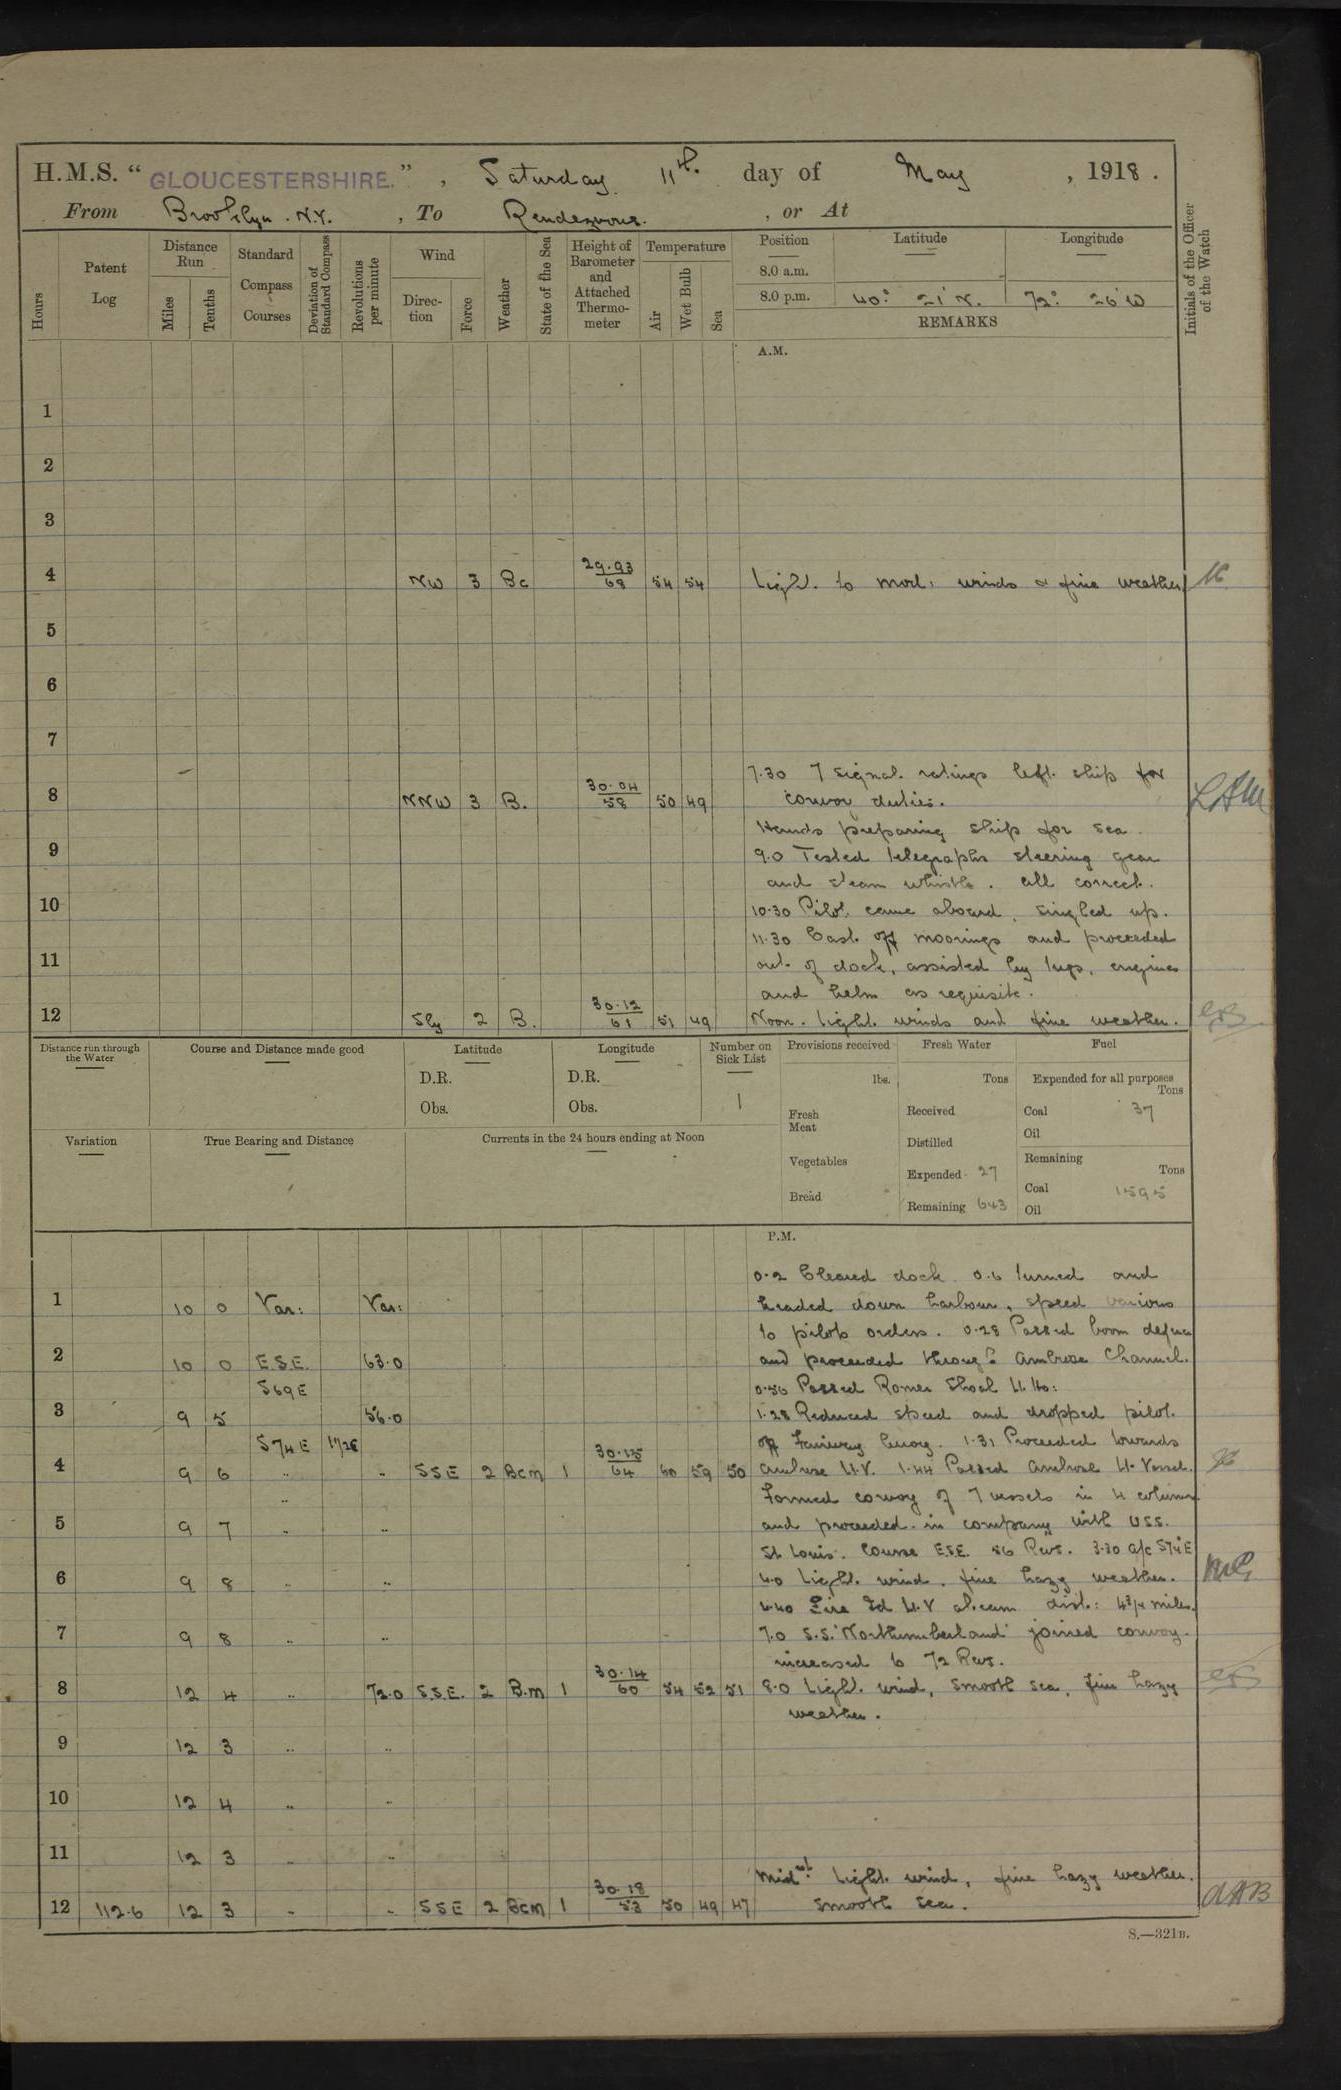 H.M.S. " GLOUCESTERSHIRE. " , Saturday 11th. day of May , 1918 .
From Brooklyn . N.Y. , To Rendezvous. , or At
Hours
Patent Log
Distance Run
Miles
Tenths
Standard Compass Courses
Deviation of Standard Compass
Revolutions per minute
Wind
Direc- tion
Force
Weather
State of the Sea
Height of Barometer and Attached Thermo- meter
Temperature
Air
Wet Bulb
Sea
Position
Latitude
Longitude
8.0 a.m.
8.0 p.m. 40° 21' N. 72° 26' W
REMARKS
Initials of the Officer of the Watch
A.M.
1
2
3
4 NW 3 Bc 29.93 68 54 54 Light. to mod: winds & fine weather
5
6
7
7.30 7 signal. ratings left. ship for
8 NNW 3 B. 30.04 58 50 49 convoy duties.
Hands preparing ship for sea.
9 9.0 Tested telegraphs steering gear
and steam whistle. all correct.
10 10.30 Pilot came aboard, singled up.
11.30 Cast. off moorings and proceeded
11 out. of dock, assisted by tugs, engines
and helm as requisite.
12 Sly 2 B. 30.12 61 51 49 Noon. Light. winds and fine weather.
Distance run through the Water
Course and Distance made good
Latitude
D.R.
Obs.
Longitude
D.R.
Obs.
Number on Sick List
1
Provisions received
lbs.
Fresh Meat
Vegetables
Bread
Fresh Water
Tons
Received
Distilled
Expended 27
Remaining 643
Fuel
Expended for all purposes
Tons
Coal 37
Oil
Remaining
Tons
Coal 1595
Oil
Variation
True Bearing and Distance
Currents in the 24 hours ending at Noon
P.M.
0.2 Cleared dock. 0.6 turned and
1 10 0 Var: Var: headed down harbour, speed various
to pilots orders. 0.28 Passed boom defence
2 10 0 E.S.E. 63.0 and proceeded through Ambrose Channel.
S69E 0.56 Passed Romer Shoal Lt. Ho:
3 9 5 56.0 1.28 Reduced speed and dropped pilot.
S74E off Fairway buoy. 1.31 Proceeded towards
4 9 6 " " SSE 2 Bcm 1 30.15 64 60 59 50 Ambrose Lt.V. 1.44 Passed Ambrose Lt. Vessel.
" Formed convoy of 7 vessels in 4 columns
5 9 7 " " and proceeded in company with USS.
St. Louis. Course E.S.E. 56 Revs. 3.30 a/c S74°E
6 9 8 " " 4.0 Light. wind, fine hazy weather.
4.40 Fire Id Lt.V abeam dist.: 4¾ miles.
7 9 8 " " 7.0 S.S. "Northumberland" joined convoy.
increased to 72 Revs.
8 12 4 " 72.0 S.S.E. 2 B.m 1 30.14 60 54 52 51 8.0 Light. wind, smooth sea, fine hazy
weather.
9 12 3 " "
10 12 4 " "
11 12 3 " "
Midnt. Light. wind, fine hazy weather.
12 112.6 12 3 " " SSE 2 Bcm 1 30.18 53 50 49 47 smooth sea.
S.—321B.